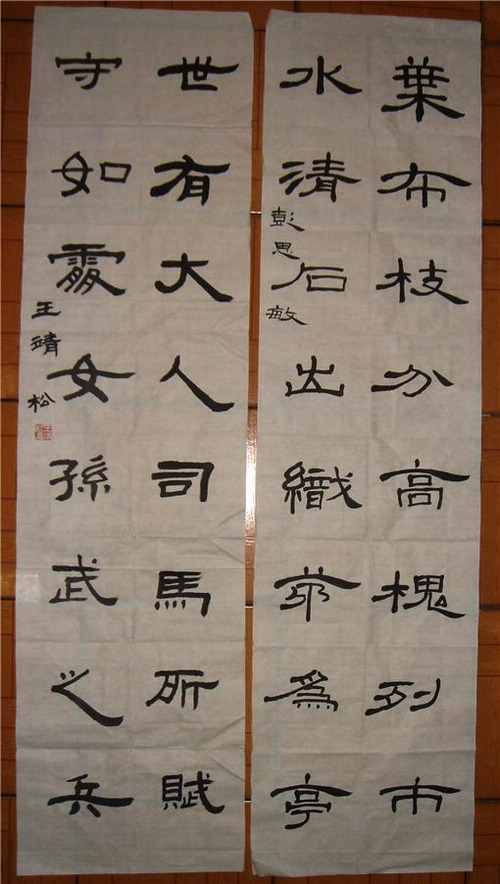 葉布枝分高槐列市
水清石出織茅爲亭
彭思敏
世有大人司馬所賦
守如處女孫武之兵
王靖松